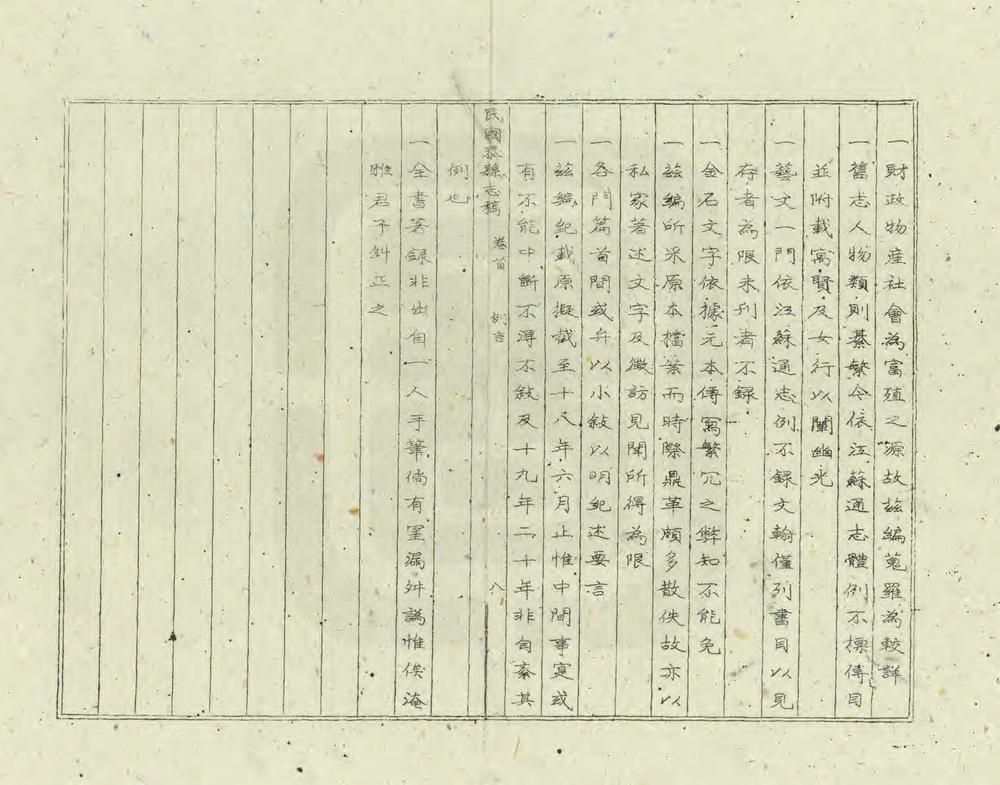 一財政物產社會為富殖之源故茲編蒐羅為較詳
一舊志人物類則綦繁今依江蘇通志體例不標傳目
並附載寓賢及女行以闡幽光
一藝文一門依江蘇通志例不錄文翰僅列書目以見
存者為限未刋者不錄
一金石文字依據元本傳寫繁冗之弊知不能免
一茲編所采原本檔案而時際鼎革頗多散佚故亦以
私家著述文字及徵訪見聞所得為限
一各門篇首間或弁以小敘以明紀述要言
一茲編紀載原擬截至十八年六月止惟中間事寔或
有不能中斷不得不敘及十九年二十年非自紊其
例也
民國泰縣志稿 卷首 例言 八
一全書著錄非出自一人手筆倘有罣漏舛譌惟俟淹
雅君子糾正之